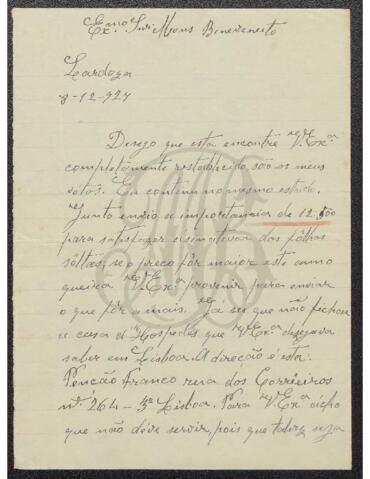 Ex.mo Snr. Mons Benevenuto
Cardoza
8-12-924
Desejo que esta encontre V. Ex.ª
completamente restabelecido, são os meus
votos. Eu contínuo no mesmo estado.
Junto envio a importancia de 12.500
para satisfazer a assinatura das fôlhas
sôltas, se o preço fôr maior este anno
queira V. Ex.ª prevenir para enviar
o que fôr a mais. Já sei que não fichou
a casa d'Hospedes que V. Ex.ª desejava
saber em Lisboa. A direção é esta:
Penção Franco rua dos Correeiros
nº. 264 - 3º Lisboa. Para V. Ex.ª acho
que não déve servir, pois que talvez seja